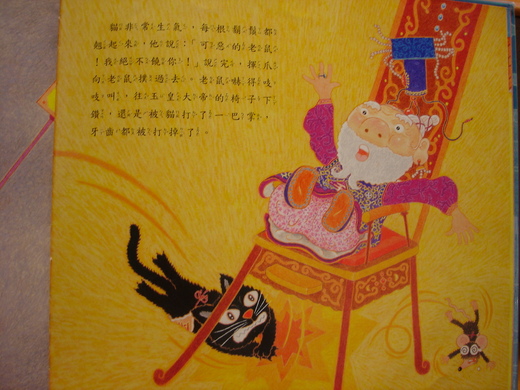 貓非常生氣，每根鬍鬚都
翹起來，他說：「可惡的老鼠
！我絕不饒你！」說完，揮爪
向老鼠撲過去。老鼠嚇得吱
吱叫，往玉皇大帝的椅子下
鑽，還是被貓打了一巴掌，
牙齒都被打掉了。